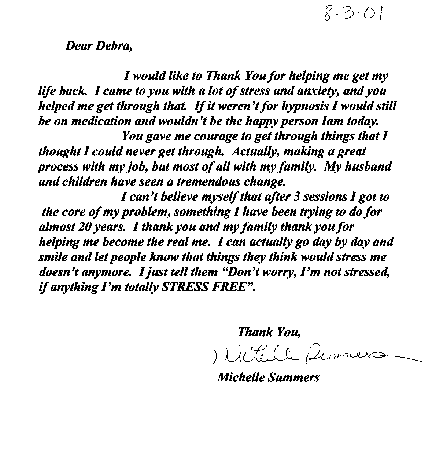 8-3-01
Dear Debra,
I would like to Thank You for helping me get my
life back. I came to you with a lot of stress and anxiety, and you
helped me get through that. If it weren't for hypnosis I would still
be on medication and wouldn't be the happy person Iam today.
You gave me courage to get through things that I
thought I could never get through. Actually, making a great
process with my job, but most of all with my family. My husband
and children have seen a tremendous change.
I can't believe myself that after 3 sessions I got to
the core of my problem, something I have been trying to do for
almost 20 years. I thank you and my family thank you for
helping me become the real me. I can actually go day by day and
smile and let people know that things they think would stress me
doesn't anymore. I just tell them "Don't worry, I'm not stressed,
if anything I'm totally STRESS FREE".
Thank You,
Michelle Summers
Michelle Summers